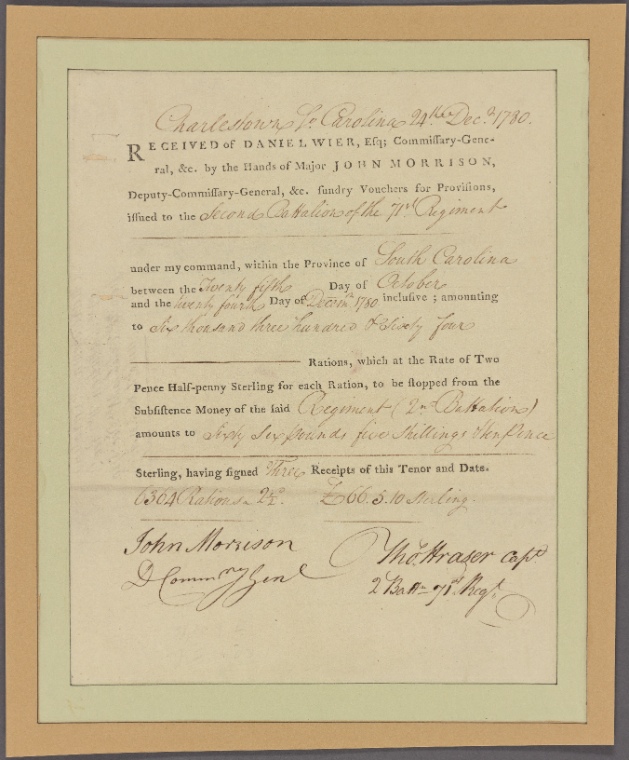 Charlestown So Carolina 24th Decr 1780.
RECEIVED of DANIEL WIER, Esq; Commiſſary-Gene-
ral, &c. by the Hands of Major JOHN MORRISON,
Deputy-Commiſſary-General, &c. ſundry Vouchers for Proviſions,
iſſued to the Second Battalion of the 71st Regiment
under my command, within the Province of South Carolina
between the Twenty fifth Day of October
and the twenty fourth Day of Decemr 1780 incluſive; amounting
to Six thousand three hundred & Sixty four
Rations, which at the Rate of Two
Pence Half-penny Sterling for each Ration, to be ſtopped from the
Subſiſtence Money of the ſaid Regiment (2nd Battalion)
amounts to Sixty Six pounds five Shillings & tenpence
Sterling, having signed Three Receipts of this Tenor and Date.
6364 Rations a 2½d. £66.5.10 Sterling.
John Morrison Thos. Fraser Capt
D Commry Genl 2 Battn 71st Regt